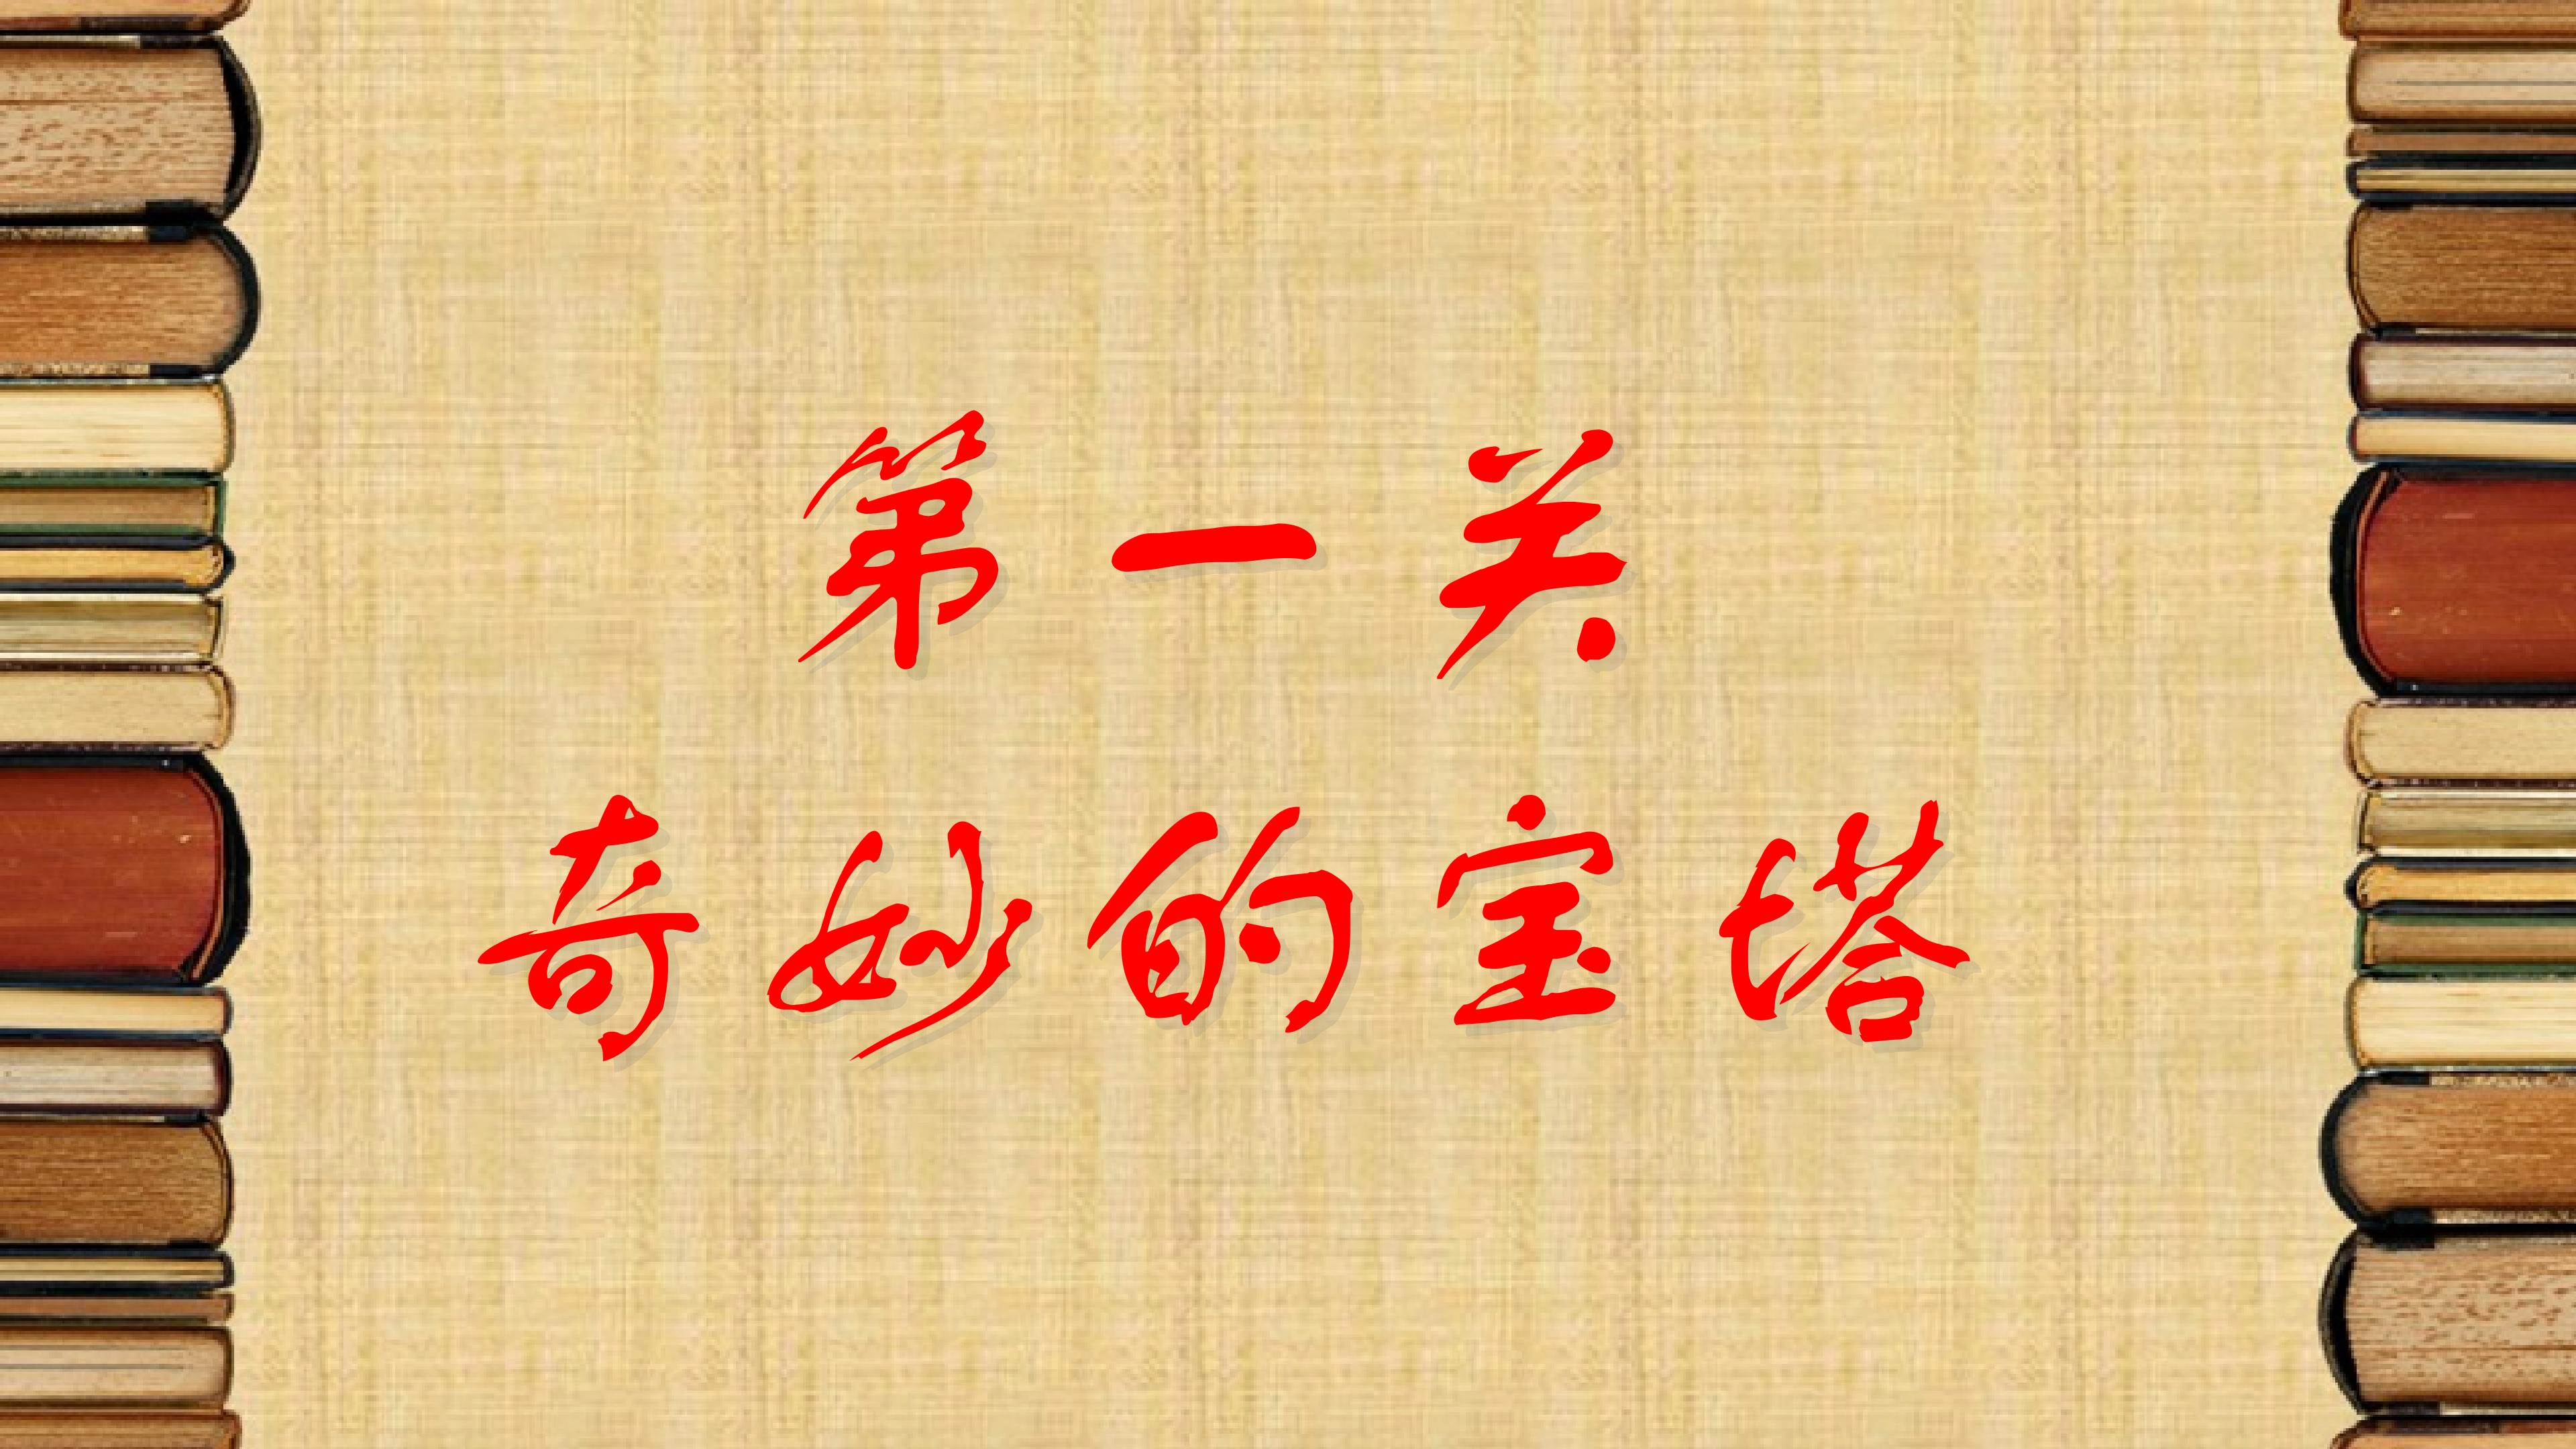 第一关
奇妙的宝塔